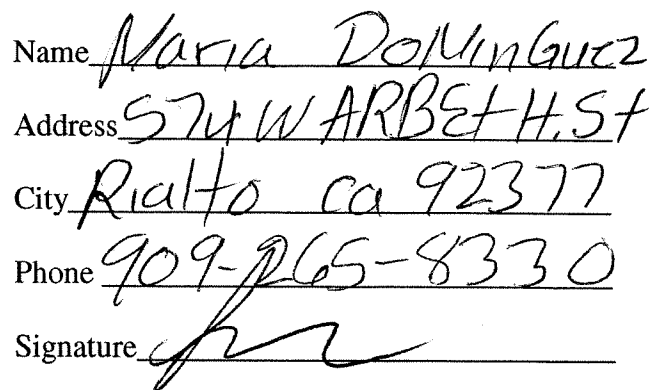 Name Maria DoMinGuez
Address 574 W ARBEtH.St
City Rialto ca 92377
Phone 909-265-8330
Signature